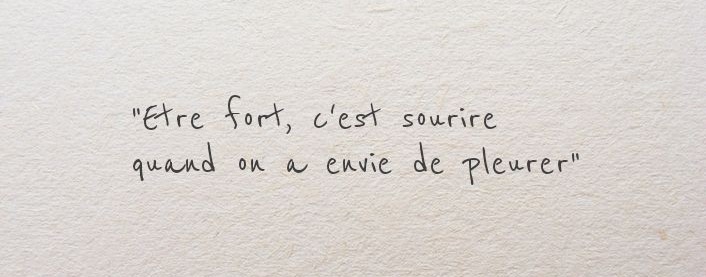 "Etre fort, c'est sourire
quand on a envie de pleurer"